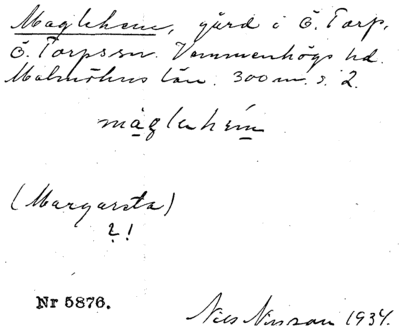 Maglehem, gård i Ö. Torp,
Ö. Torps sn. Vemmenhögs hd.
Malmöhus län. 300 m. s. 2.
màglehém
(Margareta)
?!
Nr 5876.
Nils Nilsson 1934.